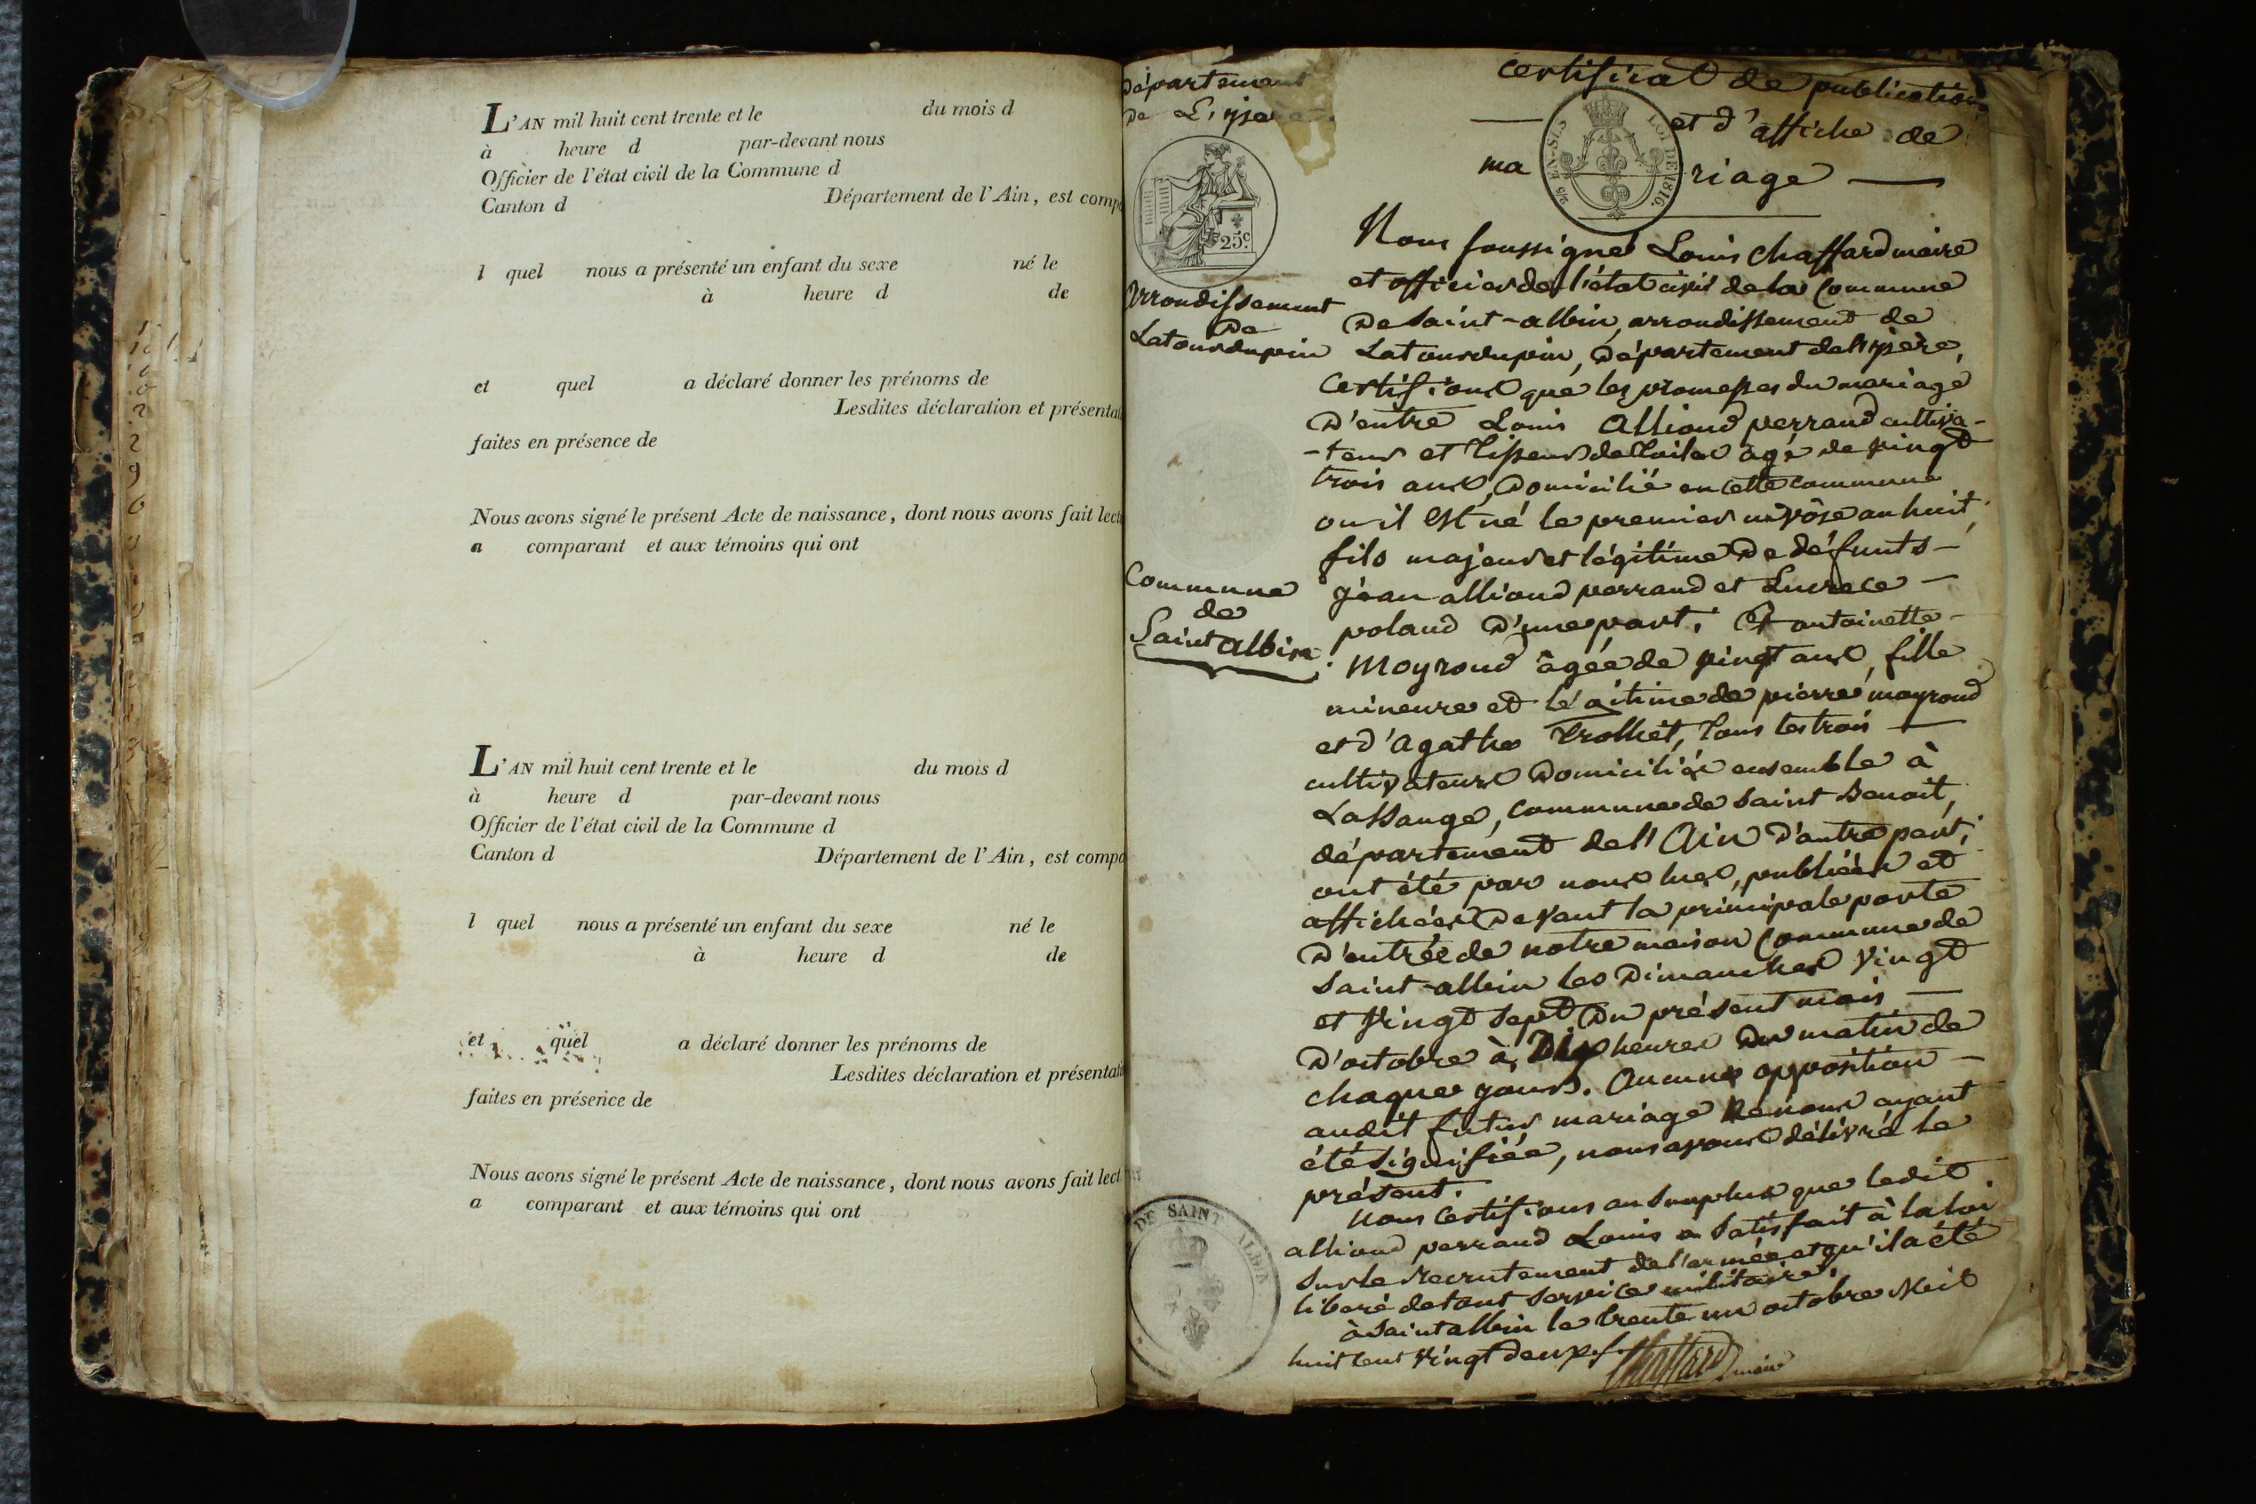 L'AN mil huit cent trente et le du mois d
à heure d par-devant nous
Officier de l'état civil de la Commune d
Canton d Département de l'Ain, est comp
l quel nous a présenté un enfant du sexe né le
à heure d de
et quel a déclaré donner les prénoms de
Lesdites déclaration et présentat
faites en présence de
Nous avons signé le présent Acte de naissance, dont nous avons fait lect
a comparant et aux témoins qui ont
L'AN mil huit cent trente et le du mois d
à heure d par-devant nous
Officier de l'état civil de la Commune d
Canton d Département de l'Ain, est comp
l quel nous a présenté un enfant du sexe né le
à heure d de
et quel a déclaré donner les prénoms de
Lesdites déclaration et présentat
faites en présence de
Nous avons signé le présent Acte de naissance, dont nous avons fait lect
a comparant et aux témoins qui ont
Département
De L'ysère
25c
arrondissement
De
Latourdupin
Commune
de
Saint albin
DE SAINT ALBIN
certificat de publication
et d'affiche de
ma riage
LOI DE 1816.
Nous soussigné Louis Chaffard maire
et officier de l'état civil de la Commune
De Saint-albin, arrondissement de
Latourdupin, Département de l'ysère,
Certifions que les promesses du mariage
D'entre Louis Allioud perraud cultiva-
-teur et tisseur de toiles âgé de vingt
trois ans, Domicilié en cette commune
ou il est né le premier nivôse an huit,
fils majeur et légitime De défunts
jéan allioud perraud et Lucrece
poland D'une part; Et antoinette
Moyroud âgée de vingt ans, fille
mineure et légitime de pierre moyroud
et d'agathe Trolliet, tous les trois
cultivateurs Domiciliés ensemble à
Lassange, commune de Saint Benoit,
département de l'Ain D'autre part;
ont été par nous lues, publiées et
affichées Devant la principale porte
D'entrée de notre maison Commune de
Saint-albin les Dimanches vingt
et vingt sept Du présent mois
D'octobre à Dix heures Du matin de
chaque jours. Aucune opposition
audit futur mariage ne nous ayant
été signifiée, nous avons délivré le
présent.
Nous Certifions au surplus que ledit
allioud perraud Louis a satisfait à la loi
sur le recrutement de l'armée et qu'il a été
liberé de tout service militaire.
à Saint albin le trente un octobre Mil
huit cent vingt deux.
Chaffard maire